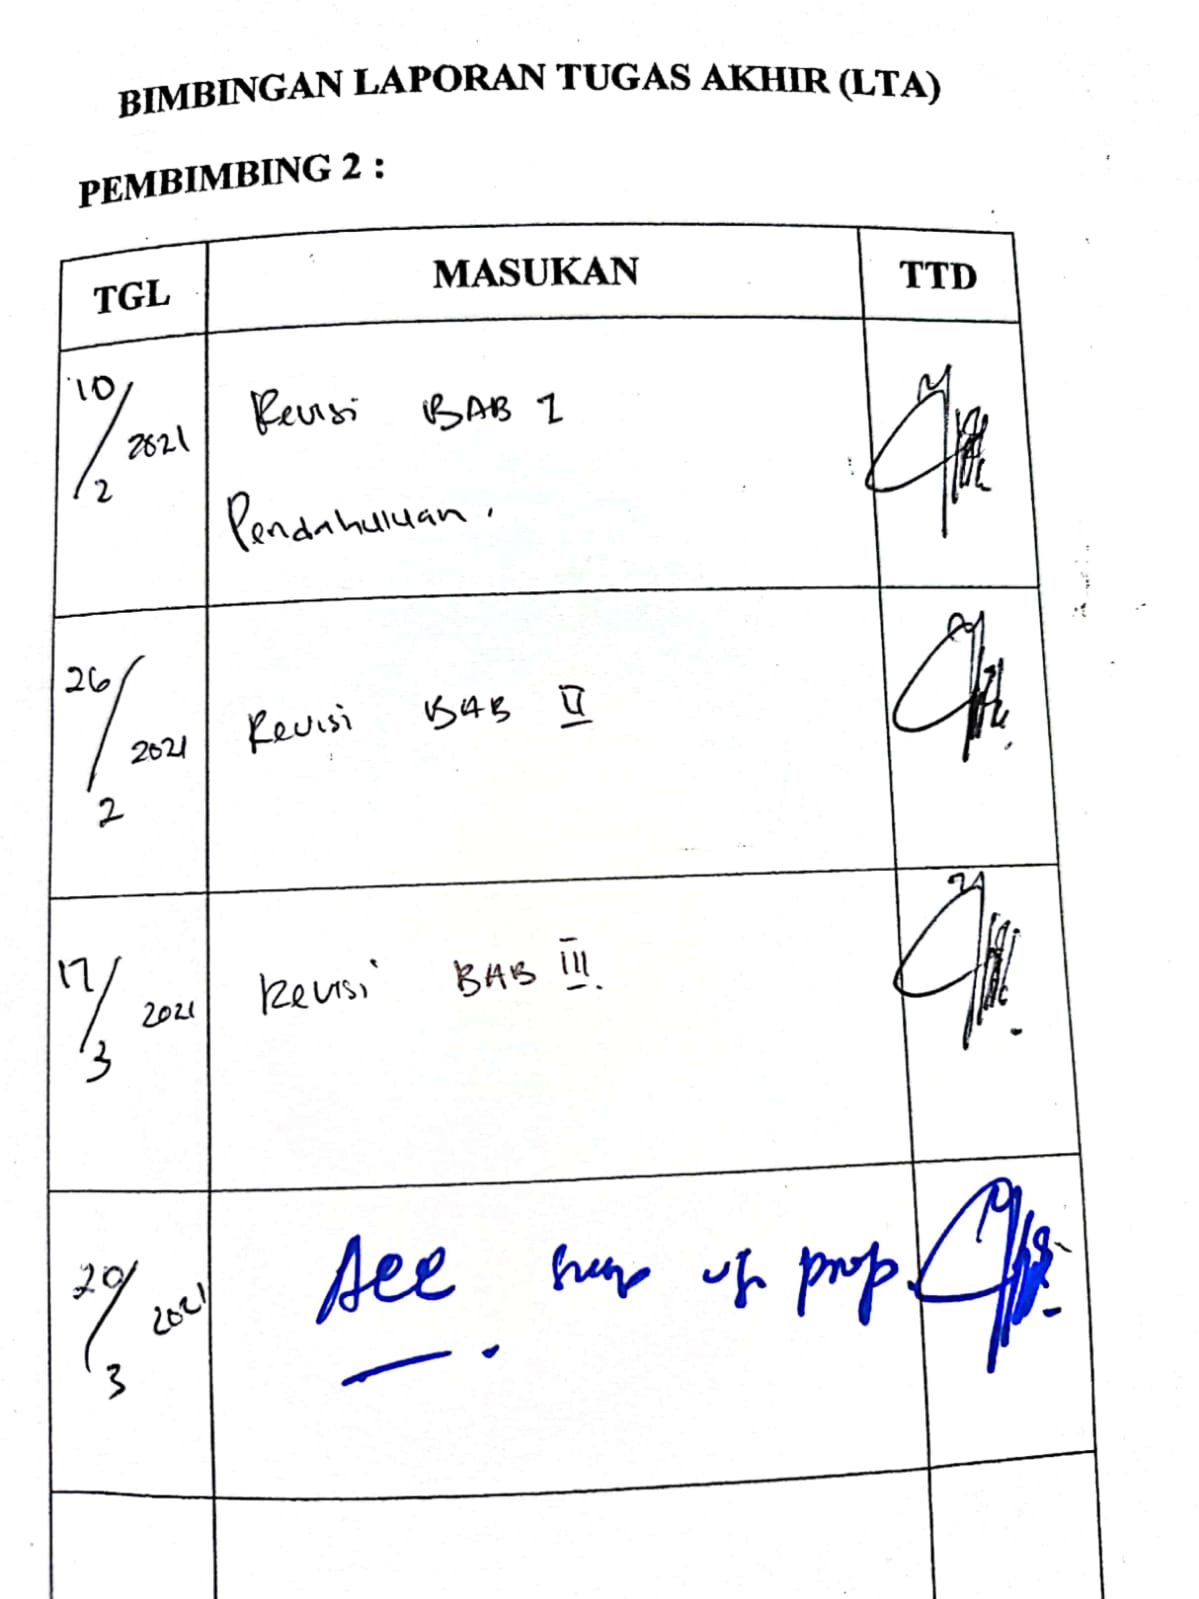 BIMBINGAN LAPORAN TUGAS AKHIR (LTA)
PEMBIMBING 2 :
TGL MASUKAN TTD
10/2 2021 Revisi BAB 1
Pendahuluan.
26/2 2021 Revisi BAB II
17/3 2021 Revisi BAB III.
20/3 2021 Acc prop.